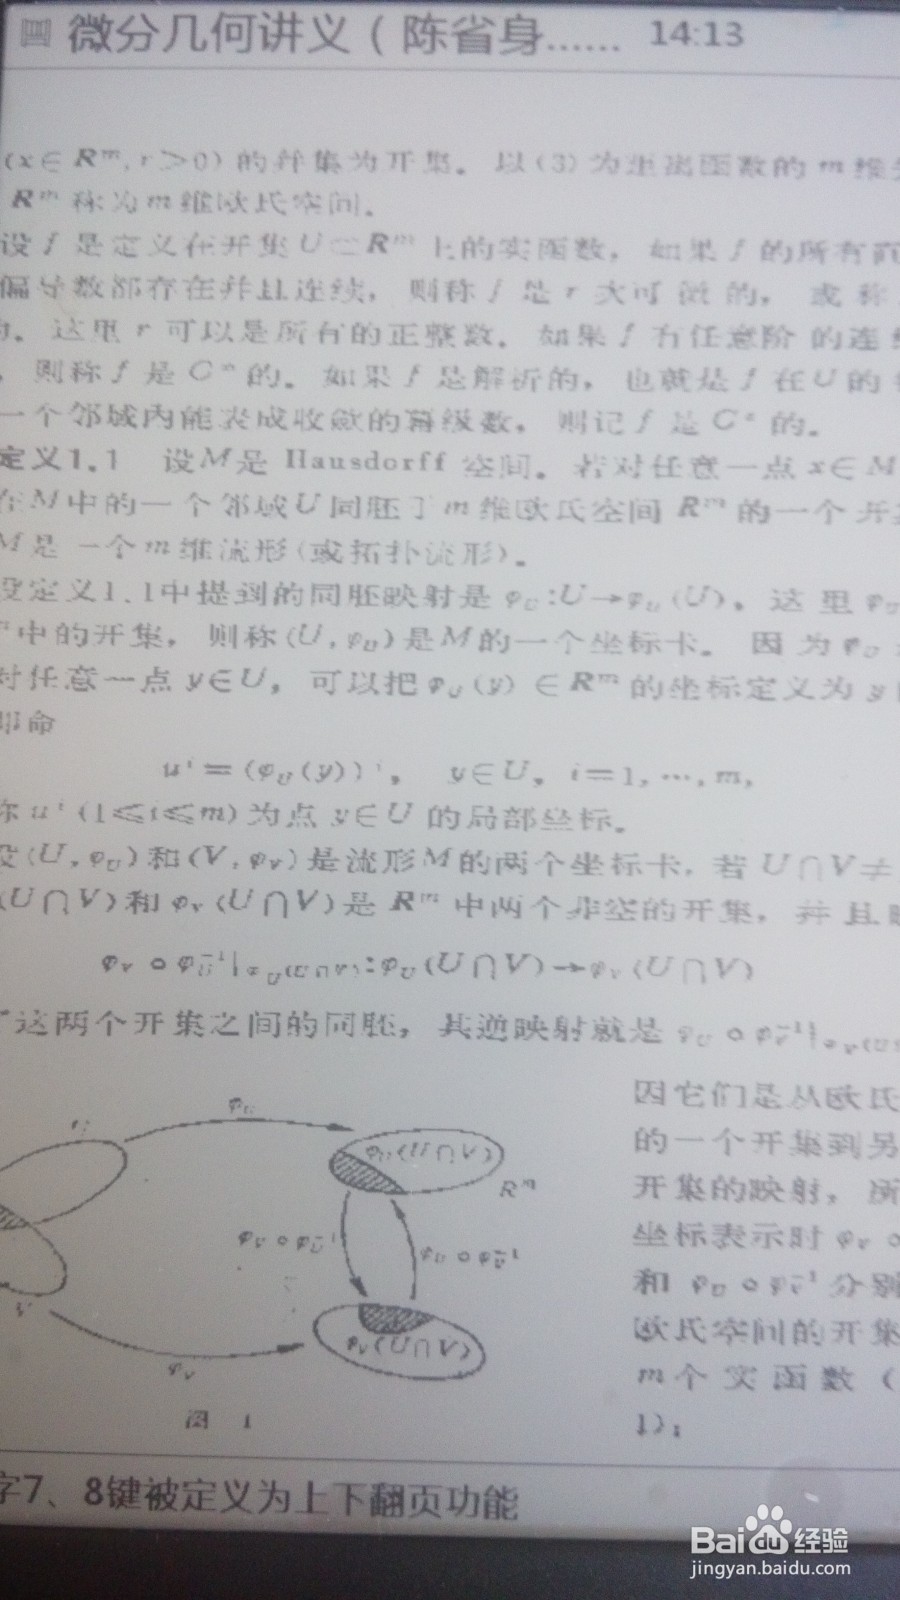 微分几何讲义（陈省身...... 14:13
(x∈Rᵐ, r＞0) 的并集为开集。以(3)为距离函数的 m 维
Rᵐ 称为 m 维欧氏空间。
设 f 是定义在开集 U⊂Rᵐ 上的实函数，如果 f 的所有
偏导数都存在并且连续，则称 f 是 r 次可微的，或称
这里 r 可以是所有的正整数。如果 f 有任意阶的连
，则称 f 是 C^∞ 的。如果 f 是解析的，也就是 f 在 U 的
一个邻域内能表成收敛的幂级数，则记 f 是 C^ω 的。
定义1.1 设 M 是 Hausdorff 空间。若对任意一点 x∈M
在 M 中的一个邻域 U 同胚于 m 维欧氏空间 Rᵐ 的一个开
M 是一个 m 维流形(或拓扑流形)。
设定义1.1中提到的同胚映射是 φ_U:U→φ_U(U)，这里 φ_U
中的开集，则称(U, φ_U)是M的一个坐标卡。因为 φ_U
对任意一点 y∈U，可以把 φ_U(y)∈Rᵐ 的坐标定义为 y
即命
uⁱ=(φ_U(y))ⁱ, y∈U, i=1, …, m,
称 uⁱ (1≤i≤m)为点 y∈U 的局部坐标。
设(U, φ_U)和(V, φ_V)是流形M的两个坐标卡，若 U∩V≠
(U∩V)和 φ_V(U∩V)是 Rᵐ 中两个非空的开集，并且
φ_V∘φ_U⁻¹|φ_U(U∩V):φ_U(U∩V)→φ_V(U∩V)
这两个开集之间的同胚，其逆映射就是 φ_U∘φ_V⁻¹|φ_V(U
因它们是从欧氏
的一个开集到另
开集的映射，所
坐标表示时 φ_V∘
和 φ_U∘φ_V⁻¹ 分别
欧氏空间的开集
m个实函数（
1)：
φ_U
U
φ_U(U∩V)
Rᵐ
φ_V∘φ_U⁻¹
φ_U∘φ_V⁻¹
V
φ_V(U∩V)
φ_V
图 1
字7、8键被定义为上下翻页功能
Baidu经验
jingyan.baidu.com